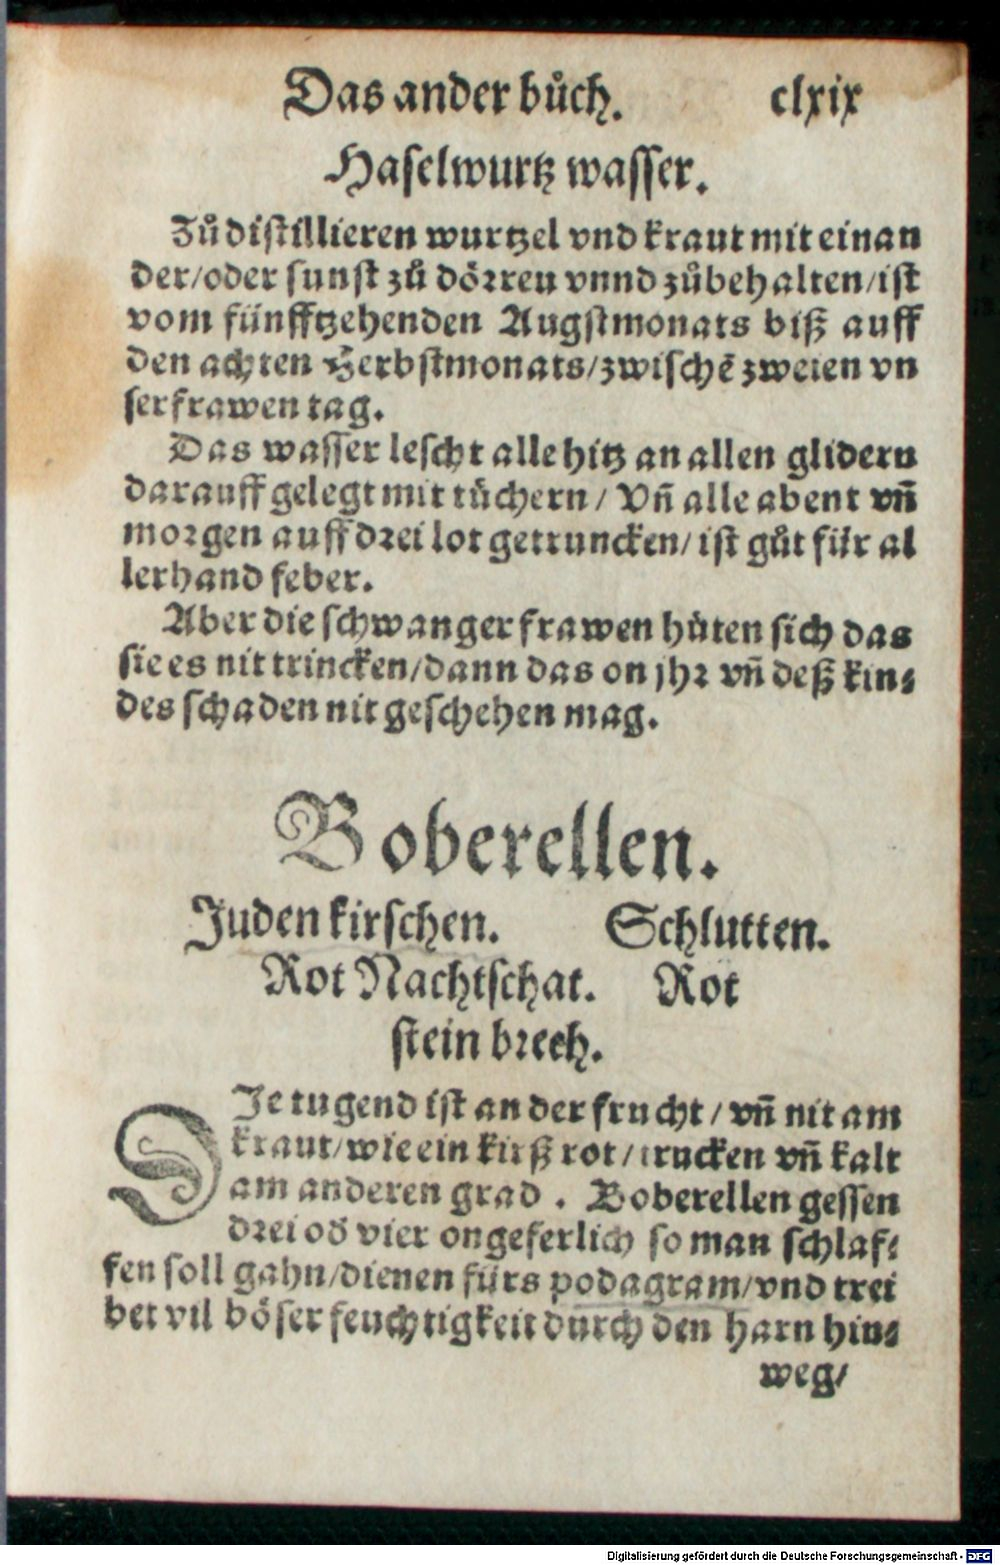 Das ander bůch. clxix
Haselwurtz wasser.
Zů distillieren wurtzel vnd kraut mit einan
der/oder sunst zů dörren vnnd zůbehalten/ist
vom fünfftzehenden Augstmonats biß auff
den achten Herbstmonats/zwischē zweien vn
ser frawen tag.
Das wasser lescht alle hitz an allen glidern
darauff gelegt mit tüchern / Vñ alle abent vñ
morgen auff drei lot getruncken/ ist gůt für al
lerhand feber.
Aber die schwanger frawen hüten sich das
sie es nit trincken/dann das on jhr vñ deß kin⸗
des schaden nit geschehen mag.
Boberellen.
Juden kirschen. Schlutten.
Rot Nachtschat. Rot
stein brech.
DJe tugend ist an der frucht / vñ nit am
kraut/wie ein kirß rot / trucken vñ kalt
am anderen grad . Boberellen gessen
drei od̄ vier ongeferlich so man schlaf⸗
fen soll gahn/dienen fürs podagram/vnd trei
bet vil böser feuchtigkeit durch den harn hin⸗
weg/
Digitalisierung gefördert durch die Deutsche Forschungsgemeinschaft - DFG